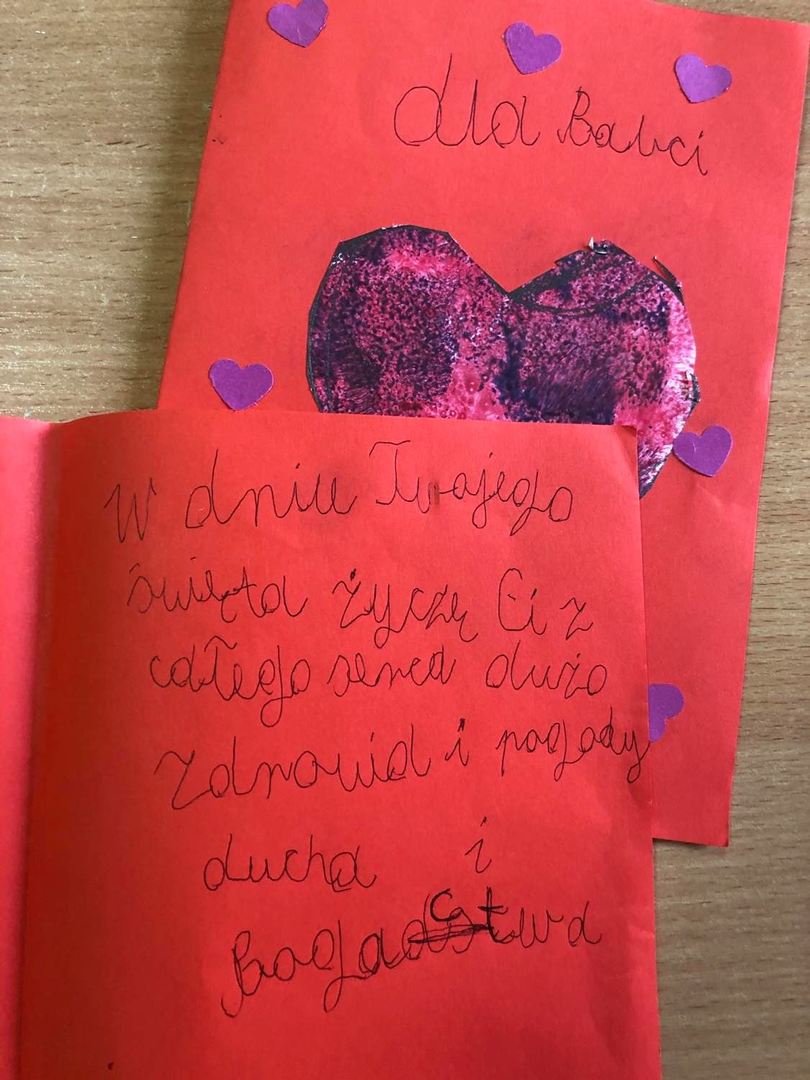 dla Babci
W dniu Twojego
święta życzę Ci z
całego serca dużo
zdrowia i pogody
ducha i
Bogactwa